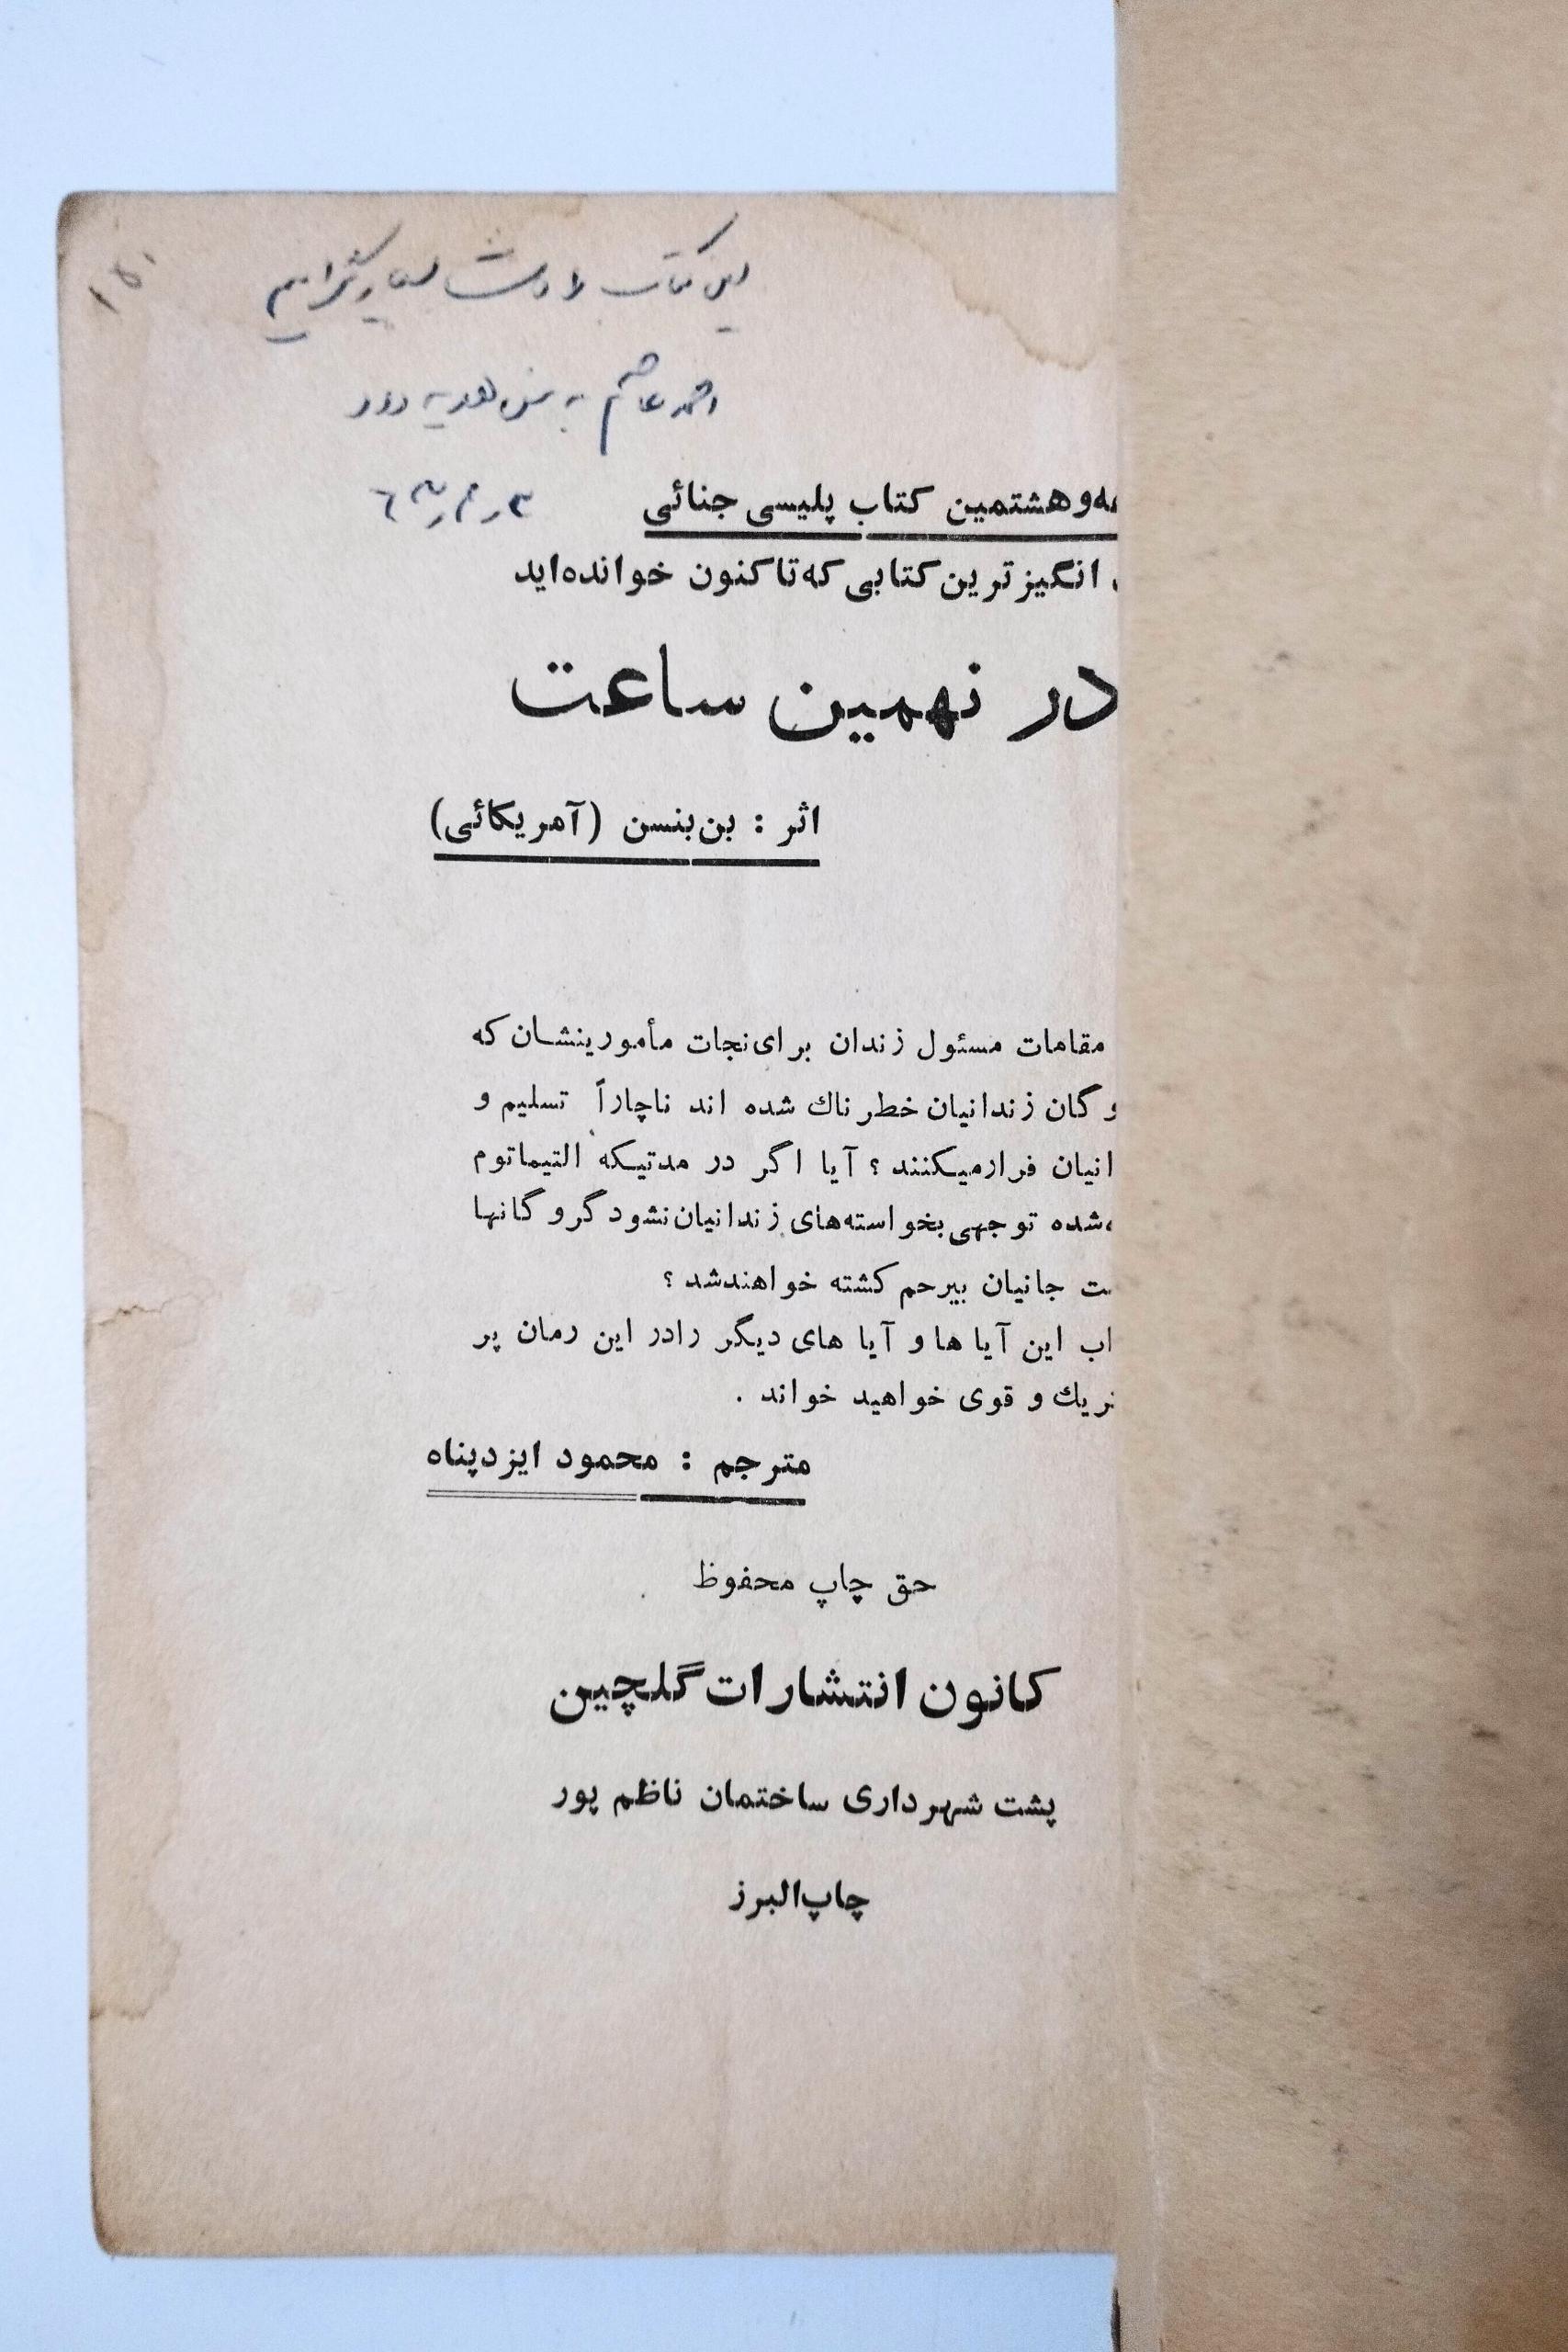 این کتاب را دوست بسیار گرامیم
احمد هاشم به من هدیه داد
۱۵۰
ه‌وهشتمین کتاب پلیسی جنائی
انگیزترین کتابی که تاکنون خوانده‌اید
در نهمین ساعت
اثر : بن‌بنسن (آمریکائی)
مقامات مسئول زندان برای نجات مأمورینشان که
و گان زندانیان خطرناك شده اند ناچاراً تسلیم و
انیان فرارمیکنند ؟ آیا اگر در مدتیکه التیماتوم
ه‌شده توجهی بخواسته‌های زندانیان نشود گروگانها
ت جانیان بیرحم کشته خواهندشد ؟
اب این آیا ها و آیا های دیگر رادر این رمان پر
ریك و قوی خواهید خواند .
مترجم : محمود ایزدپناه
حق چاپ محفوظ
کانون انتشارات گلچین
پشت شهرداری ساختمان ناظم پور
چاپ البرز